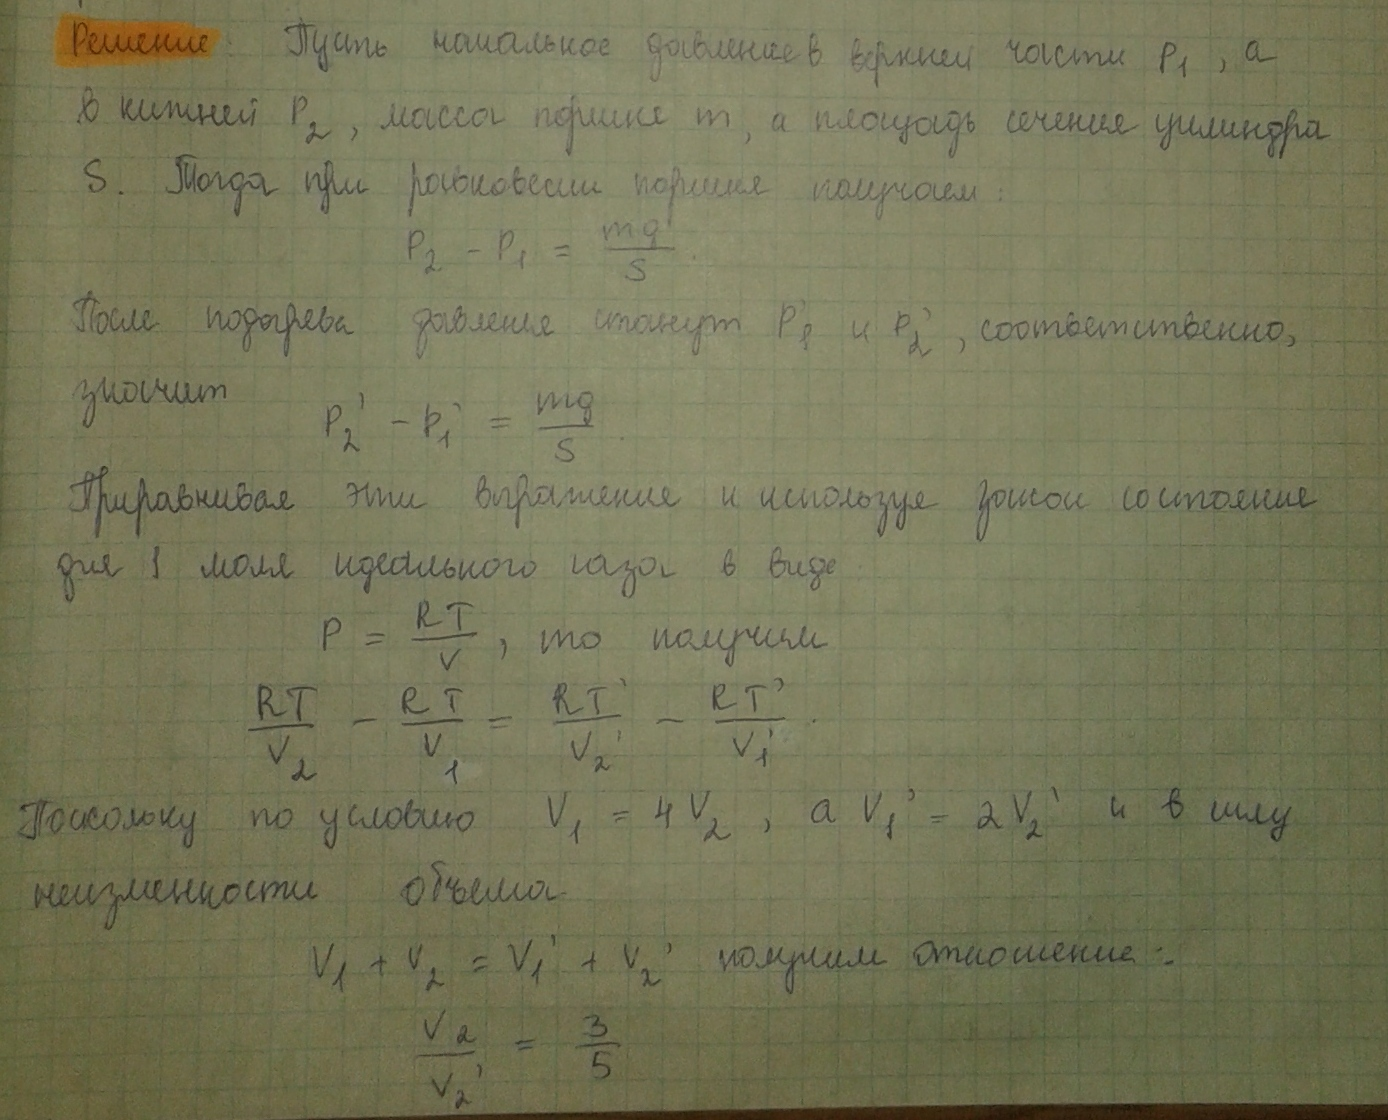 Решение: Пусть начальное давление в верхней части P₁, а
в нижней P₂, масса поршня m, а площадь сечения цилиндра
S. Тогда при равновесии поршня получаем:
P₂ - P₁ = mg/S.
После подогрева давления станут P₁' и P₂', соответственно,
значит
P₂' - P₁' = mg/S.
Приравнивая эти выражения и используя закон состояния
для 1 моля идеального газа в виде
P = RT/V, то получим
RT/V₂ - RT/V₁ = RT'/V₂' - RT'/V₁'.
Поскольку по условию V₁ = 4V₂, а V₁' = 2V₂' и в силу
неизменности объема
V₁ + V₂ = V₁' + V₂' получим отношение:
V₂/V₂' = 3/5